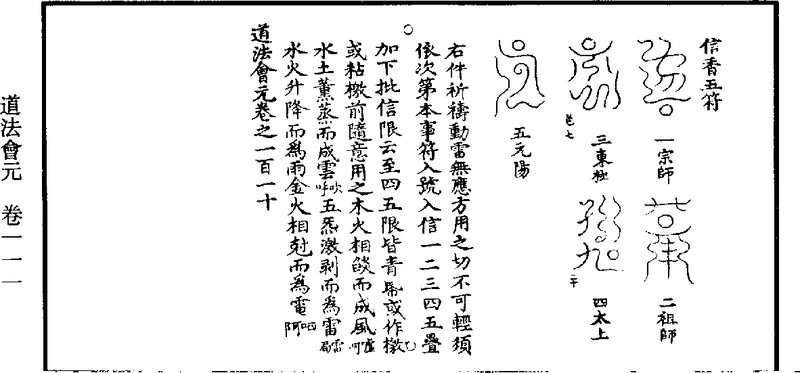 信香五符
一宗師
二祖師
三東極
四太上
五元陽
右件祈禱動雷無應方用之切不可輕須
依次第本事符入號入信一二三四五疊
加下批信限云至四五限皆青帋或作檄
或粘檄前隨意用之木火相燄而成風
水土薰蒸而成雲五炁激剥而爲雷
水火升降而爲雨金火相尅而爲電
道法會元卷之一百一十
道法會元 卷一一一